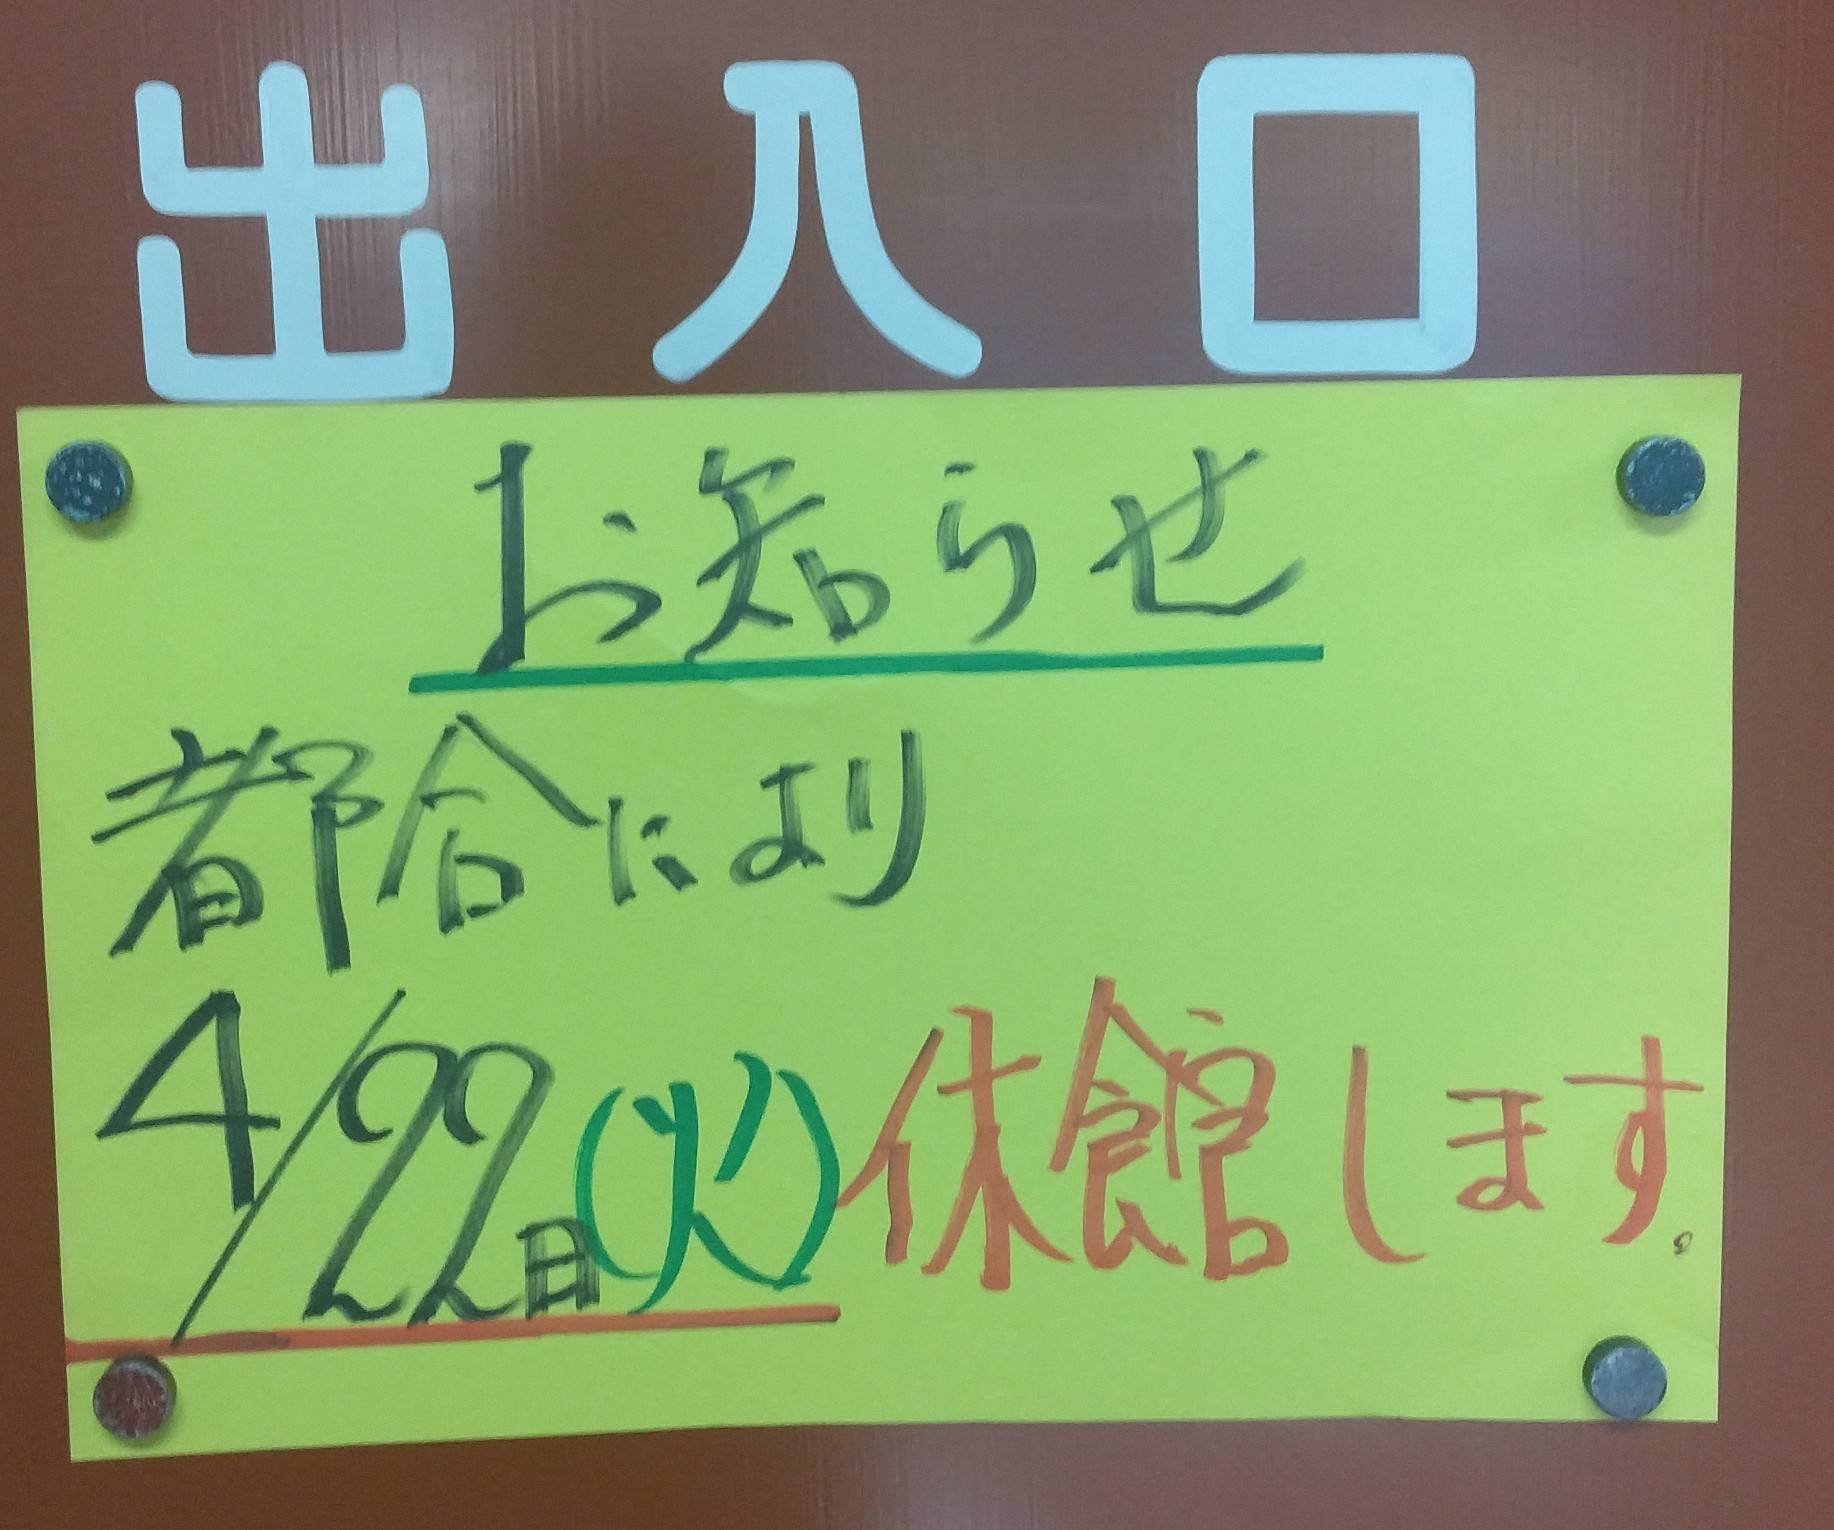 出入口
お知らせ
都合により
4/22日(火)休館します。